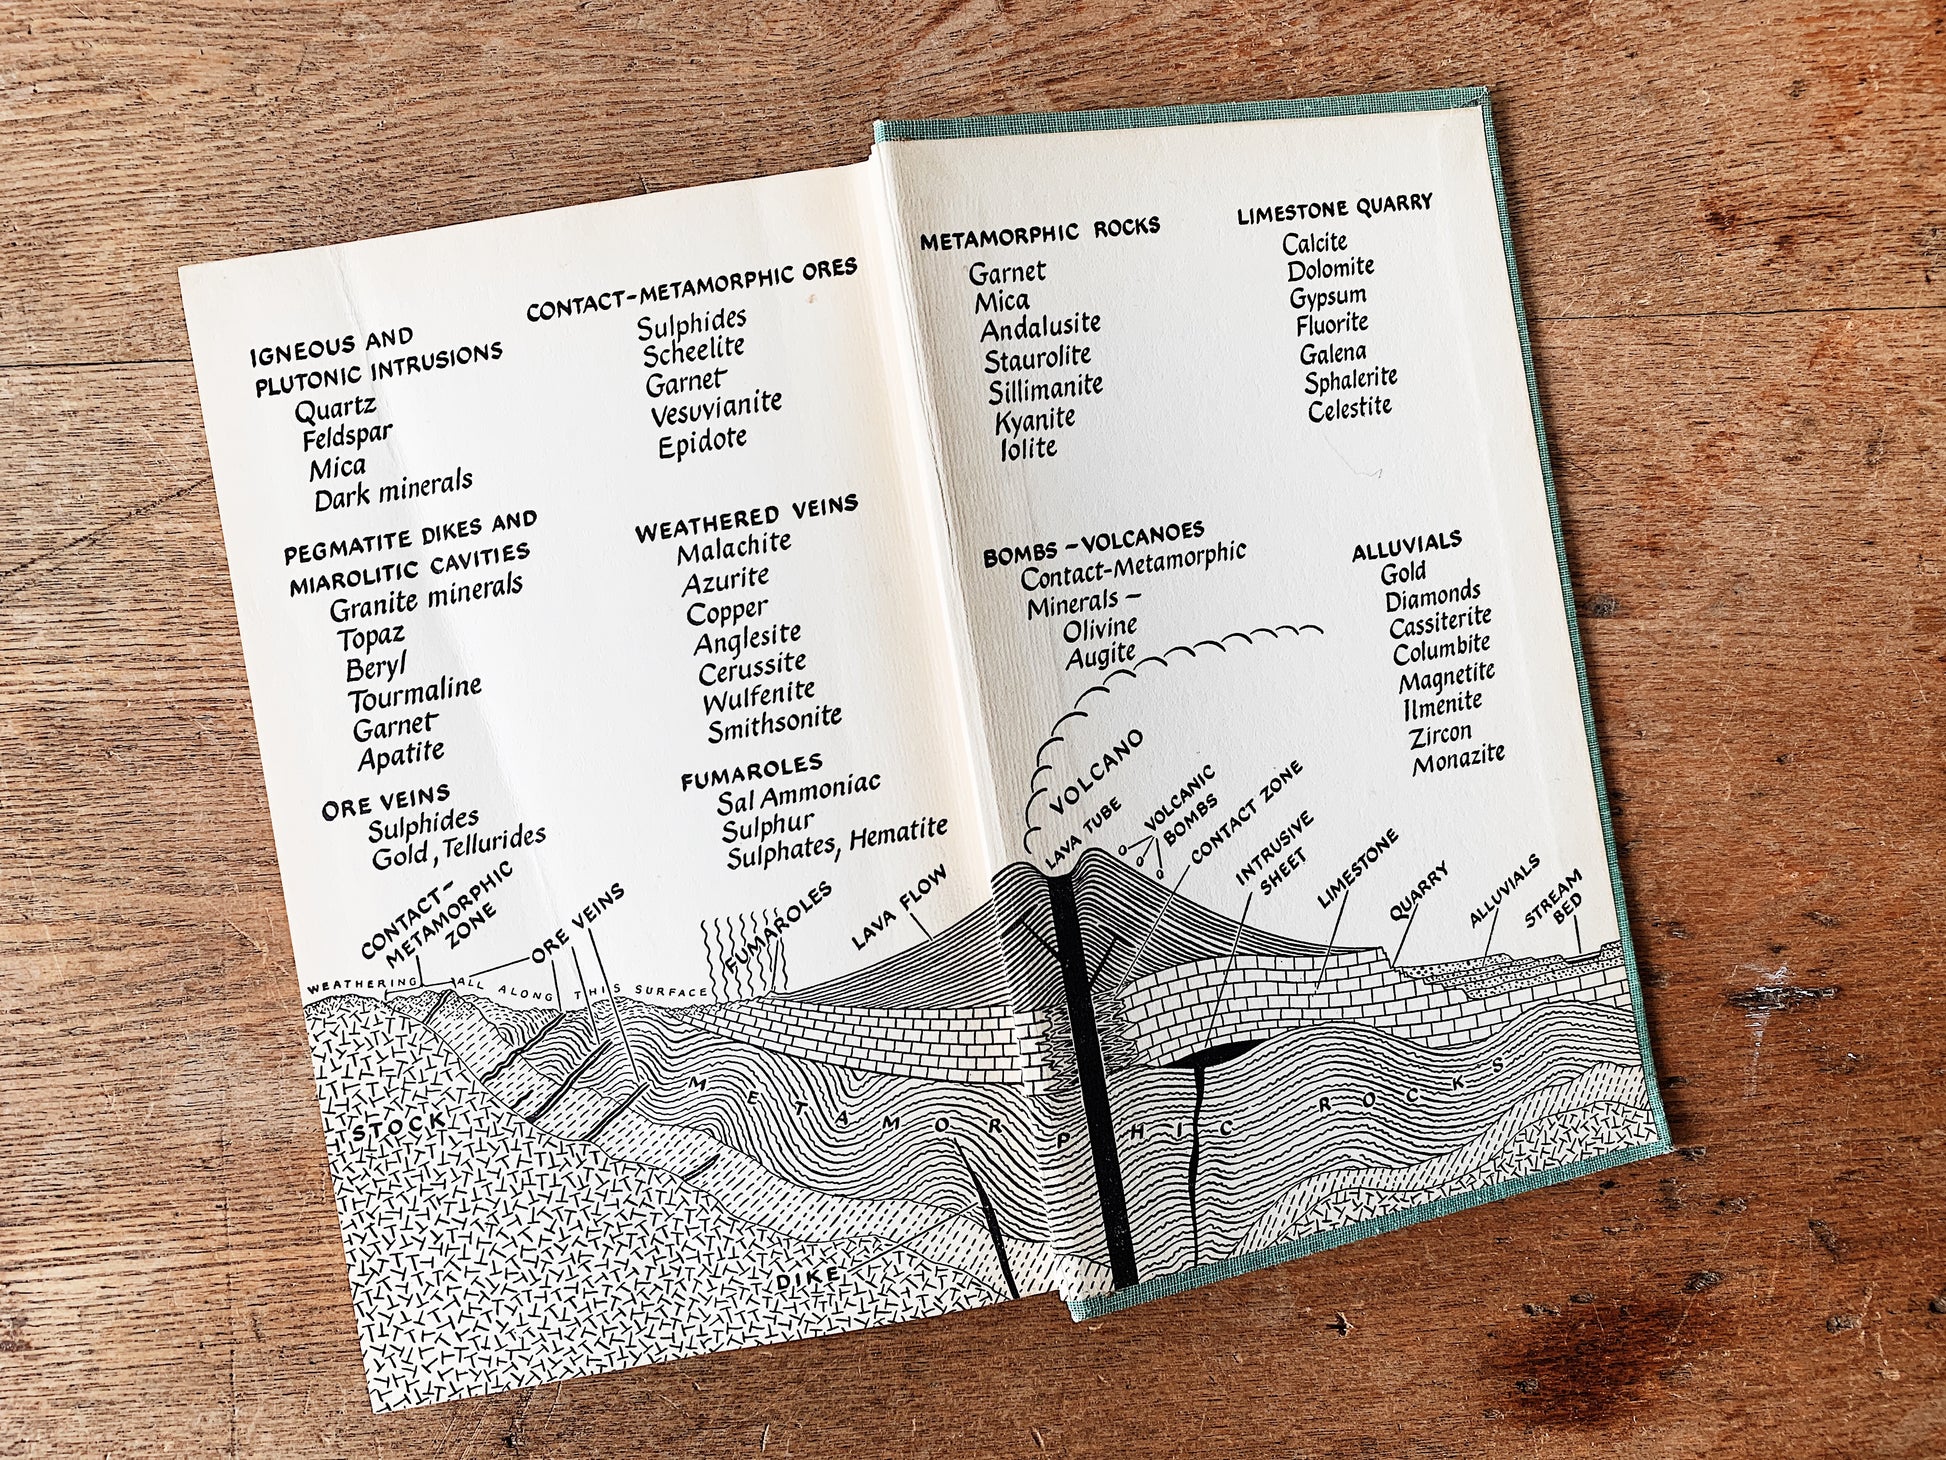 IGNEOUS AND
PLUTONIC INTRUSIONS
Quartz
Feldspar
Mica
Dark minerals
PEGMATITE DIKES AND
MIAROLITIC CAVITIES
Granite minerals
Topaz
Beryl
Tourmaline
Garnet
Apatite
ORE VEINS
Sulphides
Gold, Tellurides
CONTACT-METAMORPHIC ORES
Sulphides
Scheelite
Garnet
Vesuvianite
Epidote
WEATHERED VEINS
Malachite
Azurite
Copper
Anglesite
Cerussite
Wulfenite
Smithsonite
FUMAROLES
Sal Ammoniac
Sulphur
Sulphates, Hematite
CONTACT-
METAMORPHIC
ZONE
ORE VEINS
FUMAROLES
LAVA FLOW
WEATHERING ALL ALONG THIS SURFACE
STOCK
DIKE
METAMORPHIC ROCKS
METAMORPHIC ROCKS
Garnet
Mica
Andalusite
Staurolite
Sillimanite
Kyanite
Iolite
LIMESTONE QUARRY
Calcite
Dolomite
Gypsum
Fluorite
Galena
Sphalerite
Celestite
BOMBS - VOLCANOES
Contact-Metamorphic
Minerals -
Olivine
Augite
ALLUVIALS
Gold
Diamonds
Cassiterite
Columbite
Magnetite
Ilmenite
Zircon
Monazite
VOLCANO
LAVA TUBE
VOLCANIC
BOMBS
CONTACT ZONE
INTRUSIVE
SHEET
LIMESTONE
QUARRY
ALLUVIALS
STREAM
BED